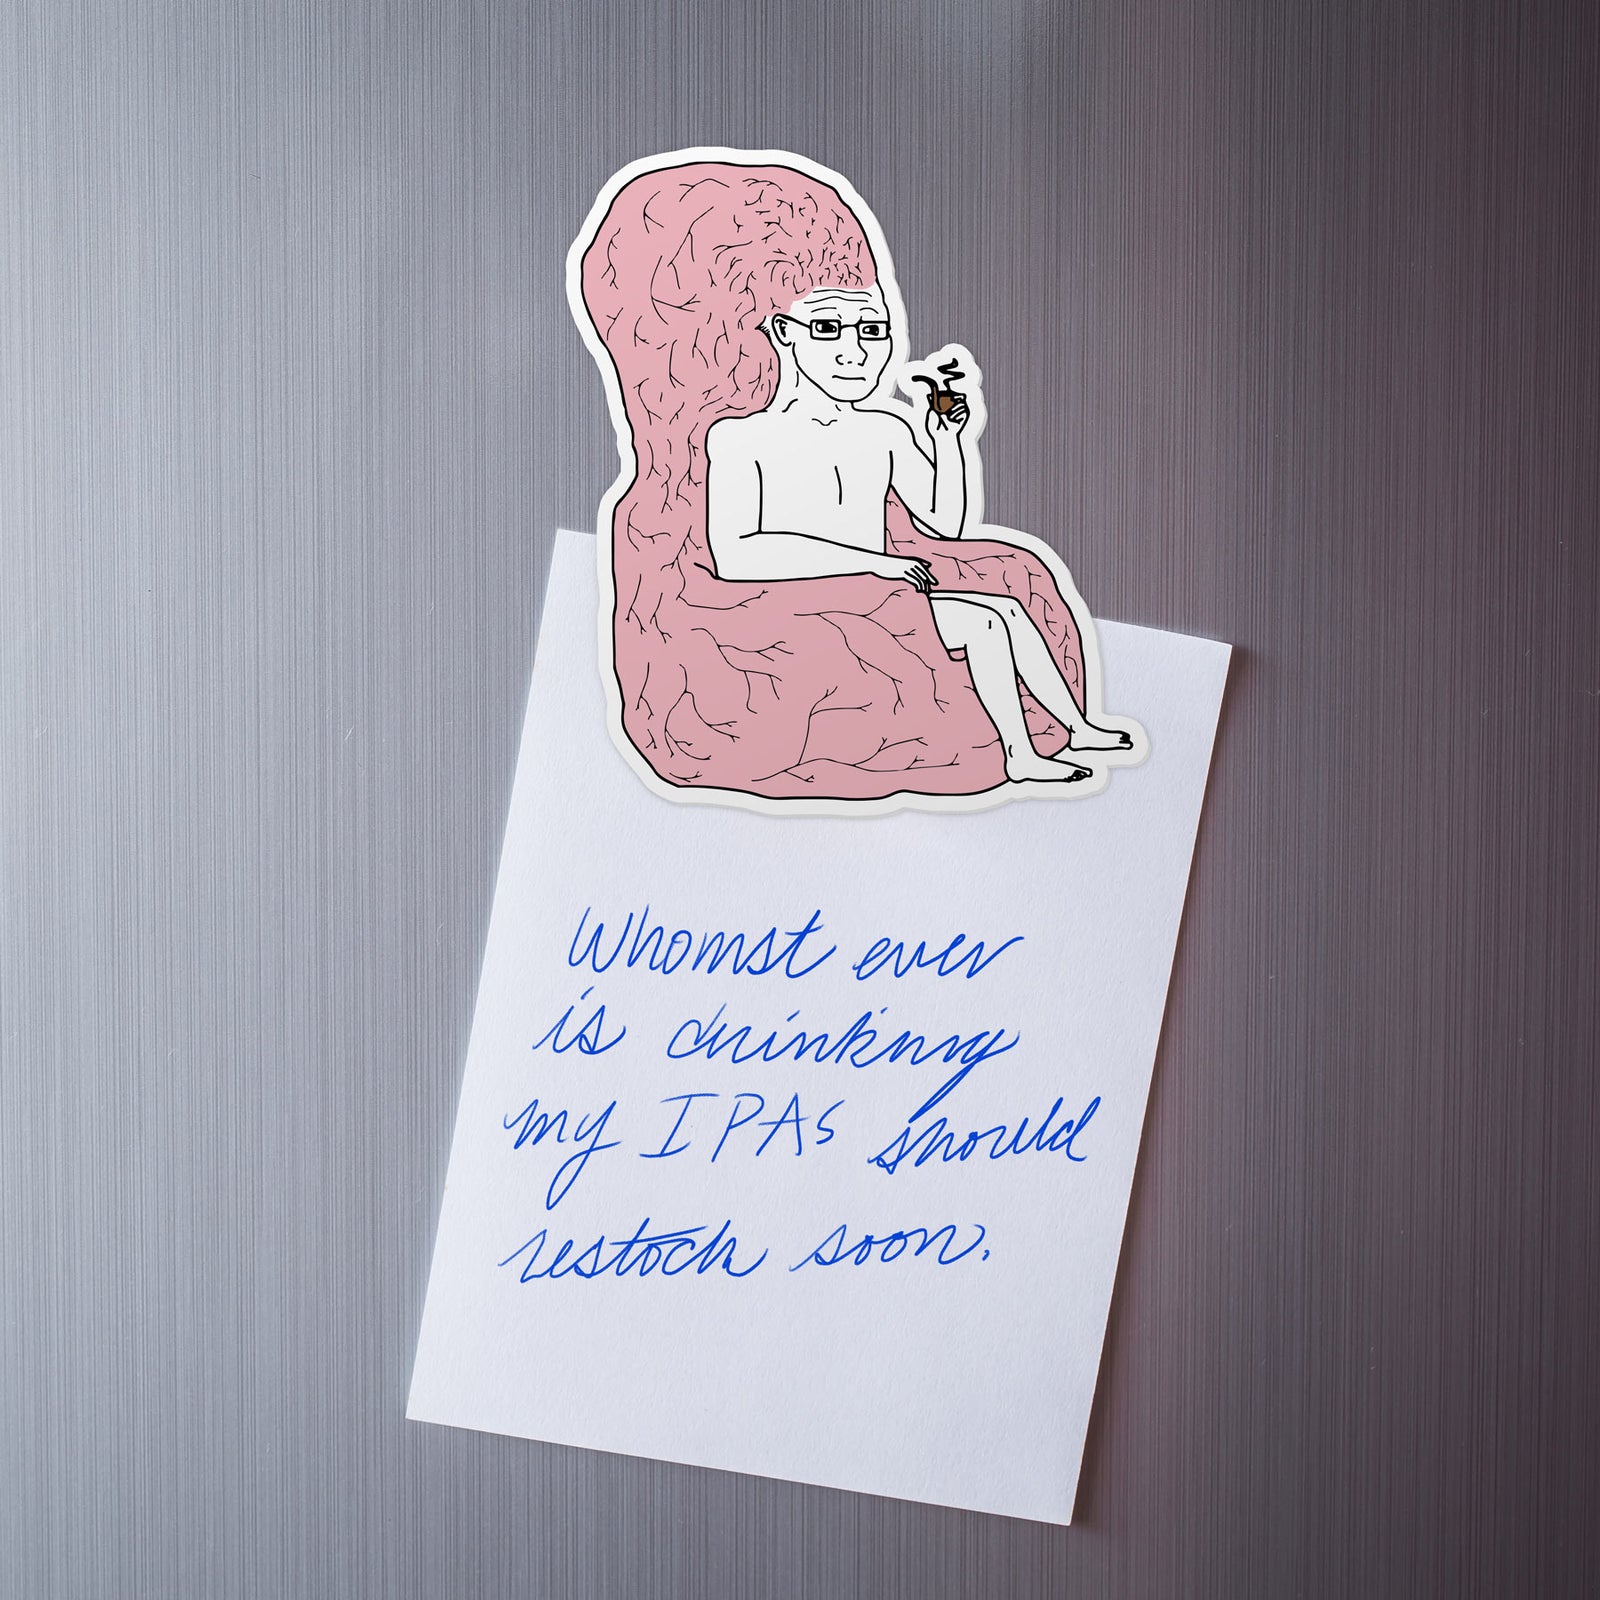 Whomst ever
is drinking
my IPAs should
restock soon.